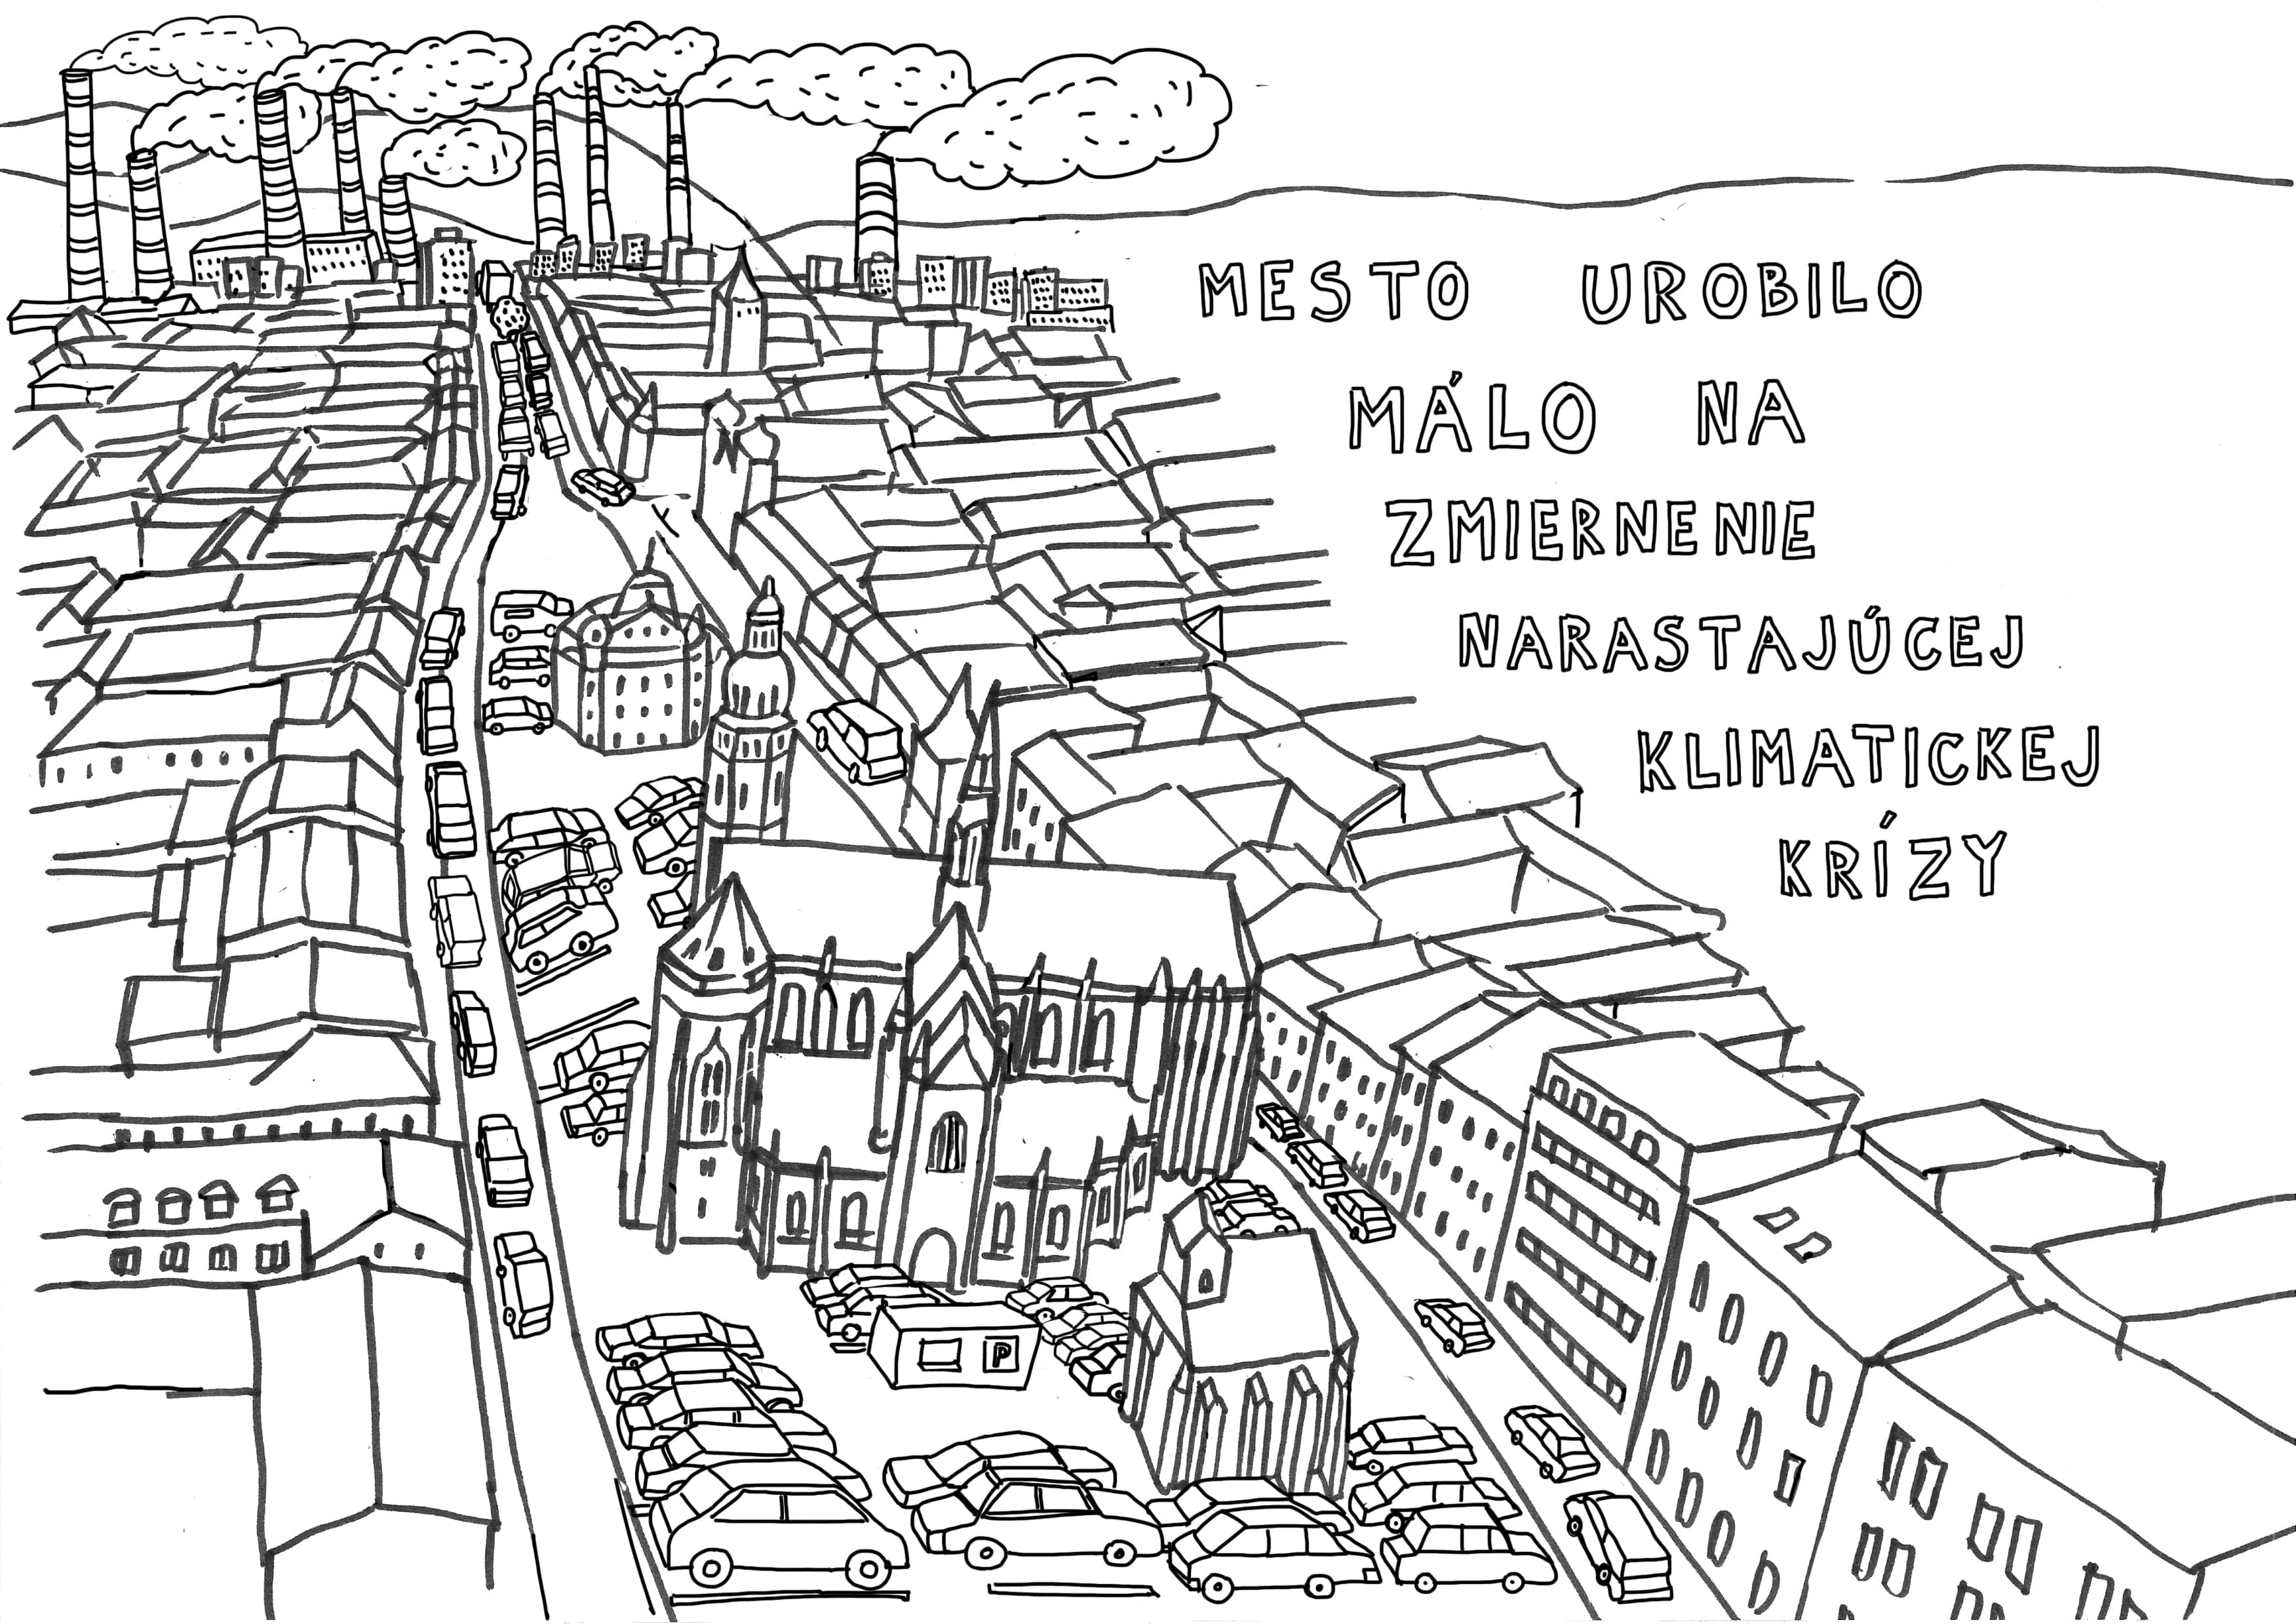 MESTO UROBILO
MÁLO NA
ZMIERNENIE
NARASTAJÚCEJ
KLIMATICKEJ
KRÍZY
P